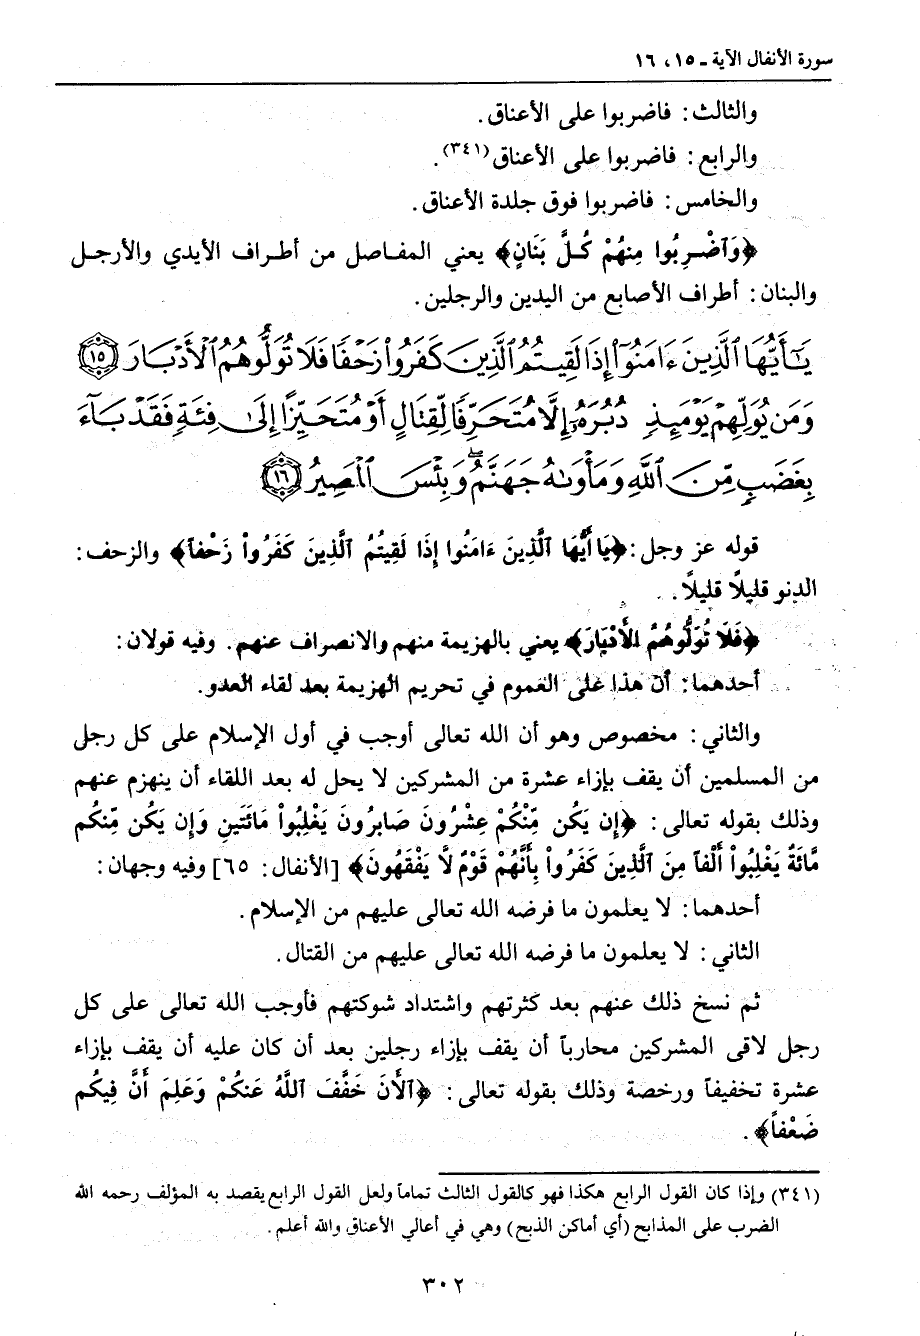 سورة الأنفال الآية ـ ١٥، ١٦
والثالث: فاضربوا على الأعناق.
والرابع: فاضربوا على الأعناق(٣٤١).
والخامس: فاضربوا فوق جلدة الأعناق.
﴿وَٱضْرِبُوا مِنهُمْ كُلَّ بَنَانٍ﴾ يعني المفاصل من أطراف الأيدي والأرجل
والبنان: أطراف الأصابع من اليدين والرجلين.
يَٰٓأَيُّهَا ٱلَّذِينَ ءَامَنُوٓا۟ إِذَا لَقِيتُمُ ٱلَّذِينَ كَفَرُوا۟ زَحْفًا فَلَا تُوَلُّوهُمُ ٱلْأَدْبَارَ ١٥
وَمَن يُوَلِّهِمْ يَوْمَئِذٍ دُبُرَهُۥٓ إِلَّا مُتَحَرِّفًا لِّقِتَالٍ أَوْ مُتَحَيِّزًا إِلَىٰ فِئَةٍ فَقَدْ بَآءَ
بِغَضَبٍ مِّنَ ٱللَّهِ وَمَأْوَىٰهُ جَهَنَّمُ ۖ وَبِئْسَ ٱلْمَصِيرُ ١٦
قوله عز وجل: ﴿يَا أَيُّهَا ٱلَّذِينَ ءَامَنُوا إِذَا لَقِيتُمُ ٱلَّذِينَ كَفَرُواْ زَحْفاً﴾ والزحف:
الدنو قليلًا قليلًا.
﴿فَلَا تُوَلُّوهُمُ الْأَدْبَارَ﴾ يعني بالهزيمة منهم والانصراف عنهم. وفيه قولان:
أحدهما: أن هذا على العموم في تحريم الهزيمة بعد لقاء العدو.
والثاني: مخصوص وهو أن الله تعالى أوجب في أول الإسلام على كل رجل
من المسلمين أن يقف بإزاء عشرة من المشركين لا يحل له بعد اللقاء أن ينهزم عنهم
وذلك بقوله تعالى: ﴿إِن يَكُن مِّنْكُمْ عِشْرُونَ صَابِرُونَ يَغْلِبُواْ مَائَتَينِ وَإِن يَكُن مِّنكُم
مِّائَةٌ يَغْلِبُواْ أَلْفاً مِنَ ٱلَّذِينَ كَفَرُواْ بِأَنَّهُمْ قَوْمٌ لاَّ يَفْقَهُونَ﴾ [الأنفال: ٦٥] وفيه وجهان:
أحدهما: لا يعلمون ما فرضه الله تعالى عليهم من الإسلام.
الثاني: لا يعلمون ما فرضه الله تعالى عليهم من القتال.
ثم نسخ ذلك عنهم بعد كثرتهم واشتداد شوكتهم فأوجب الله تعالى على كل
رجل لاقى المشركين محارباً أن يقف بإزاء رجلين بعد أن كان عليه أن يقف بإزاء
عشرة تخفيفاً ورخصة وذلك بقوله تعالى: ﴿ٱلْأَنَ خَفَّفَ ٱللَّهُ عَنكُمْ وَعَلِمَ أَنَّ فِيكُم
ضَعْفاً﴾.
(٣٤١) وإذا كان القول الرابع هكذا فهو كالقول الثالث تماماً ولعل القول الرابع يقصد به المؤلف رحمه الله
الضرب على المذابح (أي أماكن الذبح) وهي في أعالي الأعناق والله أعلم.
٣٠٢